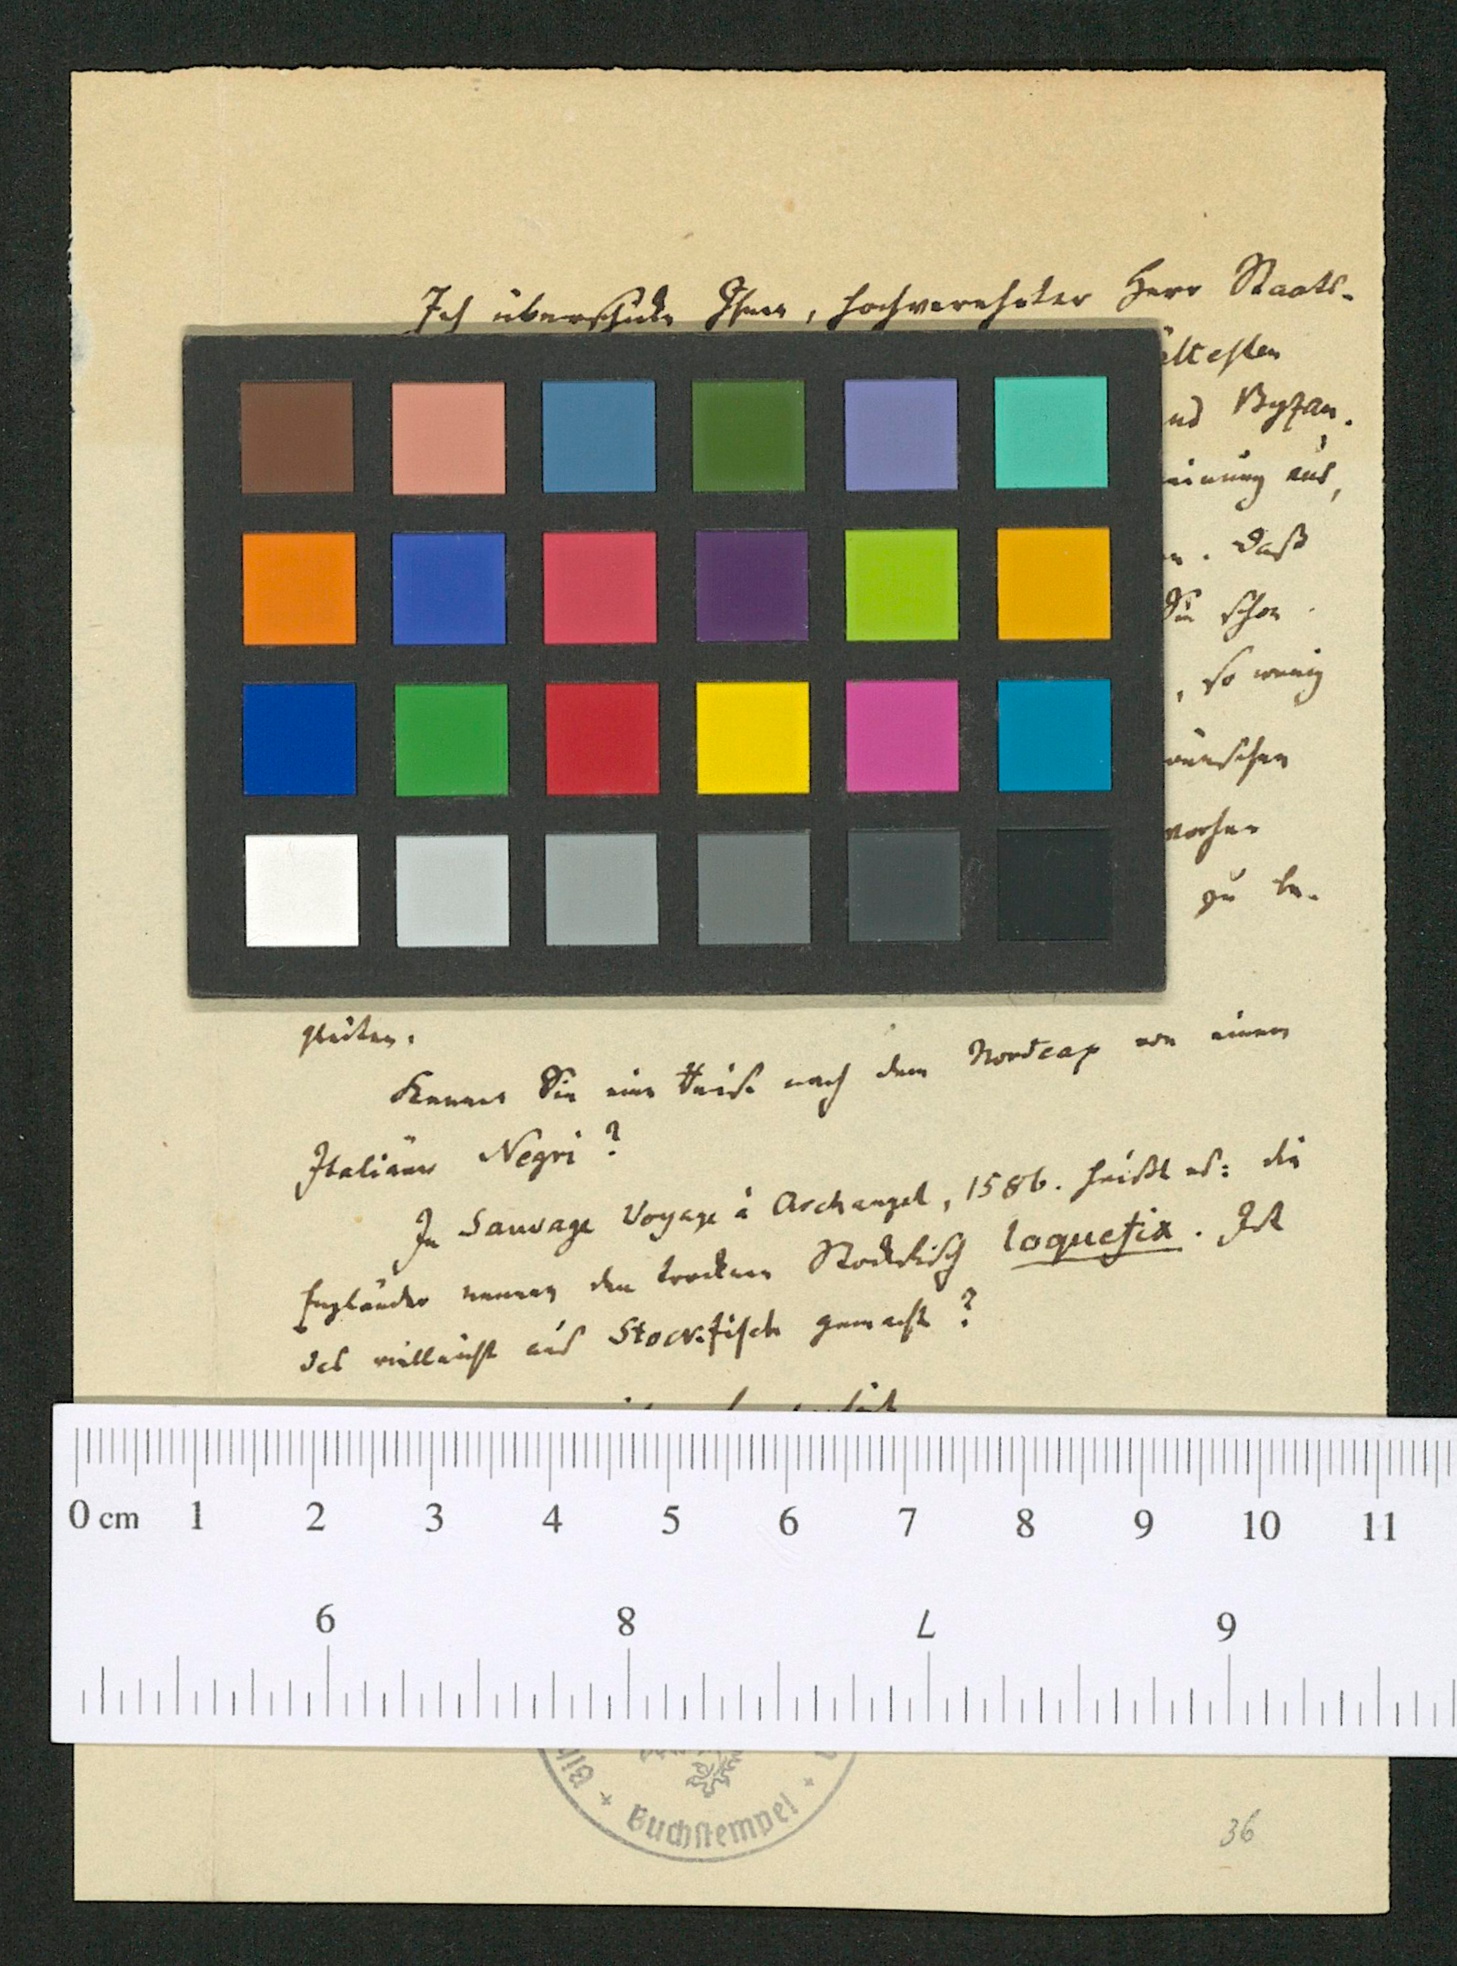 Ich überschicke Ihnen, hochverehrter Herr Staats-
ältesten
nd Byzan-
einung aus,
n. Daß
Sie schon
, so wenig
wünschen
vorher
zu be-
gleiten.
Kennen Sie eine Reise nach dem Nordcap von einem
Italiäner Negri?
In Sauvage Voyage à Archangel, 1586. heißt es: die
Engländer nennen den trocknen Stockfisch loquefix. Ist
das vielleicht aus Stockfisch gemacht?
0 cm 1 2 3 4 5 6 7 8 9 10 11
6 8 7 9
Bib
Buchstempel
36